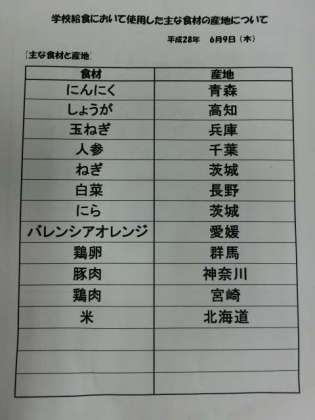 学校給食において使用した主な食材の産地について
平成28年 6月9日（木）
［主な食材と産地］
食材 産地
にんにく 青森
しょうが 高知
玉ねぎ 兵庫
人参 千葉
ねぎ 茨城
白菜 長野
にら 茨城
バレンシアオレンジ 愛媛
鶏卵 群馬
豚肉 神奈川
鶏肉 宮崎
米 北海道